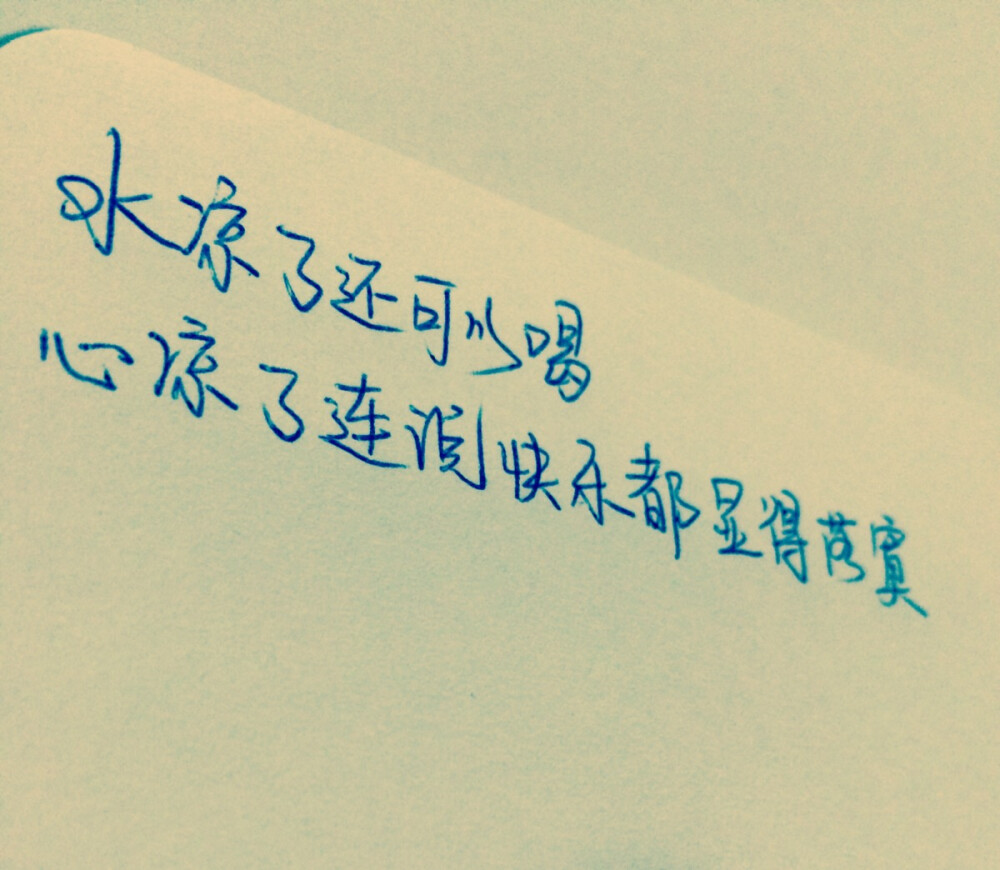 水凉了还可以喝
心凉了连快乐都显得落寞